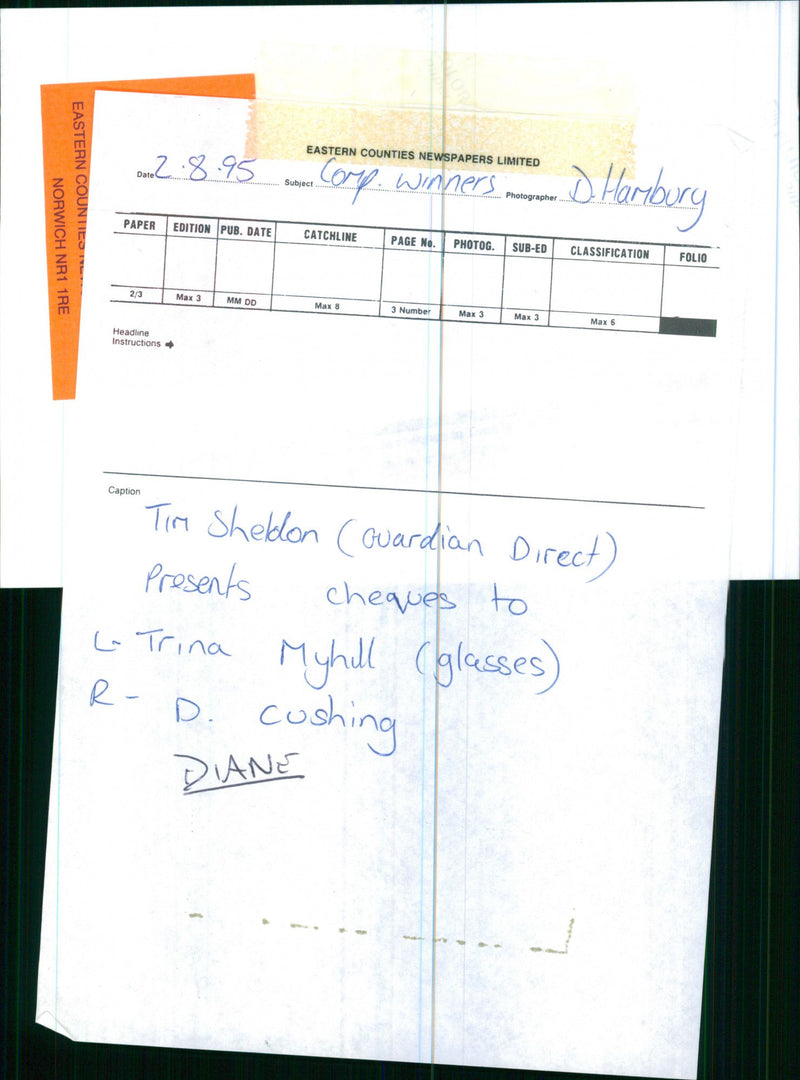 EASTERN COUNTIES
NORWICH NR1 1RE
EASTERN COUNTIES NEWSPAPERS LIMITED
Date 2.8.95 Subject Comp. winners Photographer D. Hambury
PAPER EDITION PUB. DATE CATCHLINE PAGE No. PHOTOG. SUB-ED CLASSIFICATION FOLIO
2/3 Max 3 MM DD Max 8 3 Number Max 3 Max 3 Max 6
Headline
Instructions
Caption
Tim Sheldon (Guardian Direct)
Presents cheques to
L- Trina Myhill (glasses)
R - D. cushing
DIANE